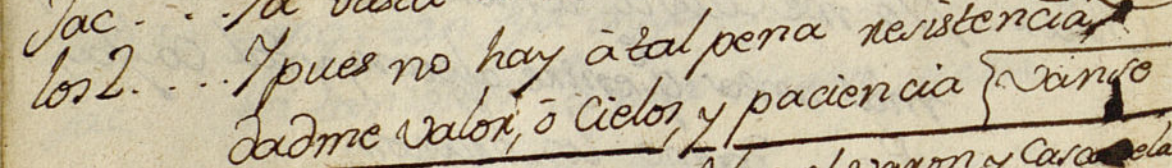 Jac . . . Ya basta
los 2. . . . Y pues no hay â tal pena resistencia,
dadme valor, ô Cielos, y paciencia } vanse
y Casca